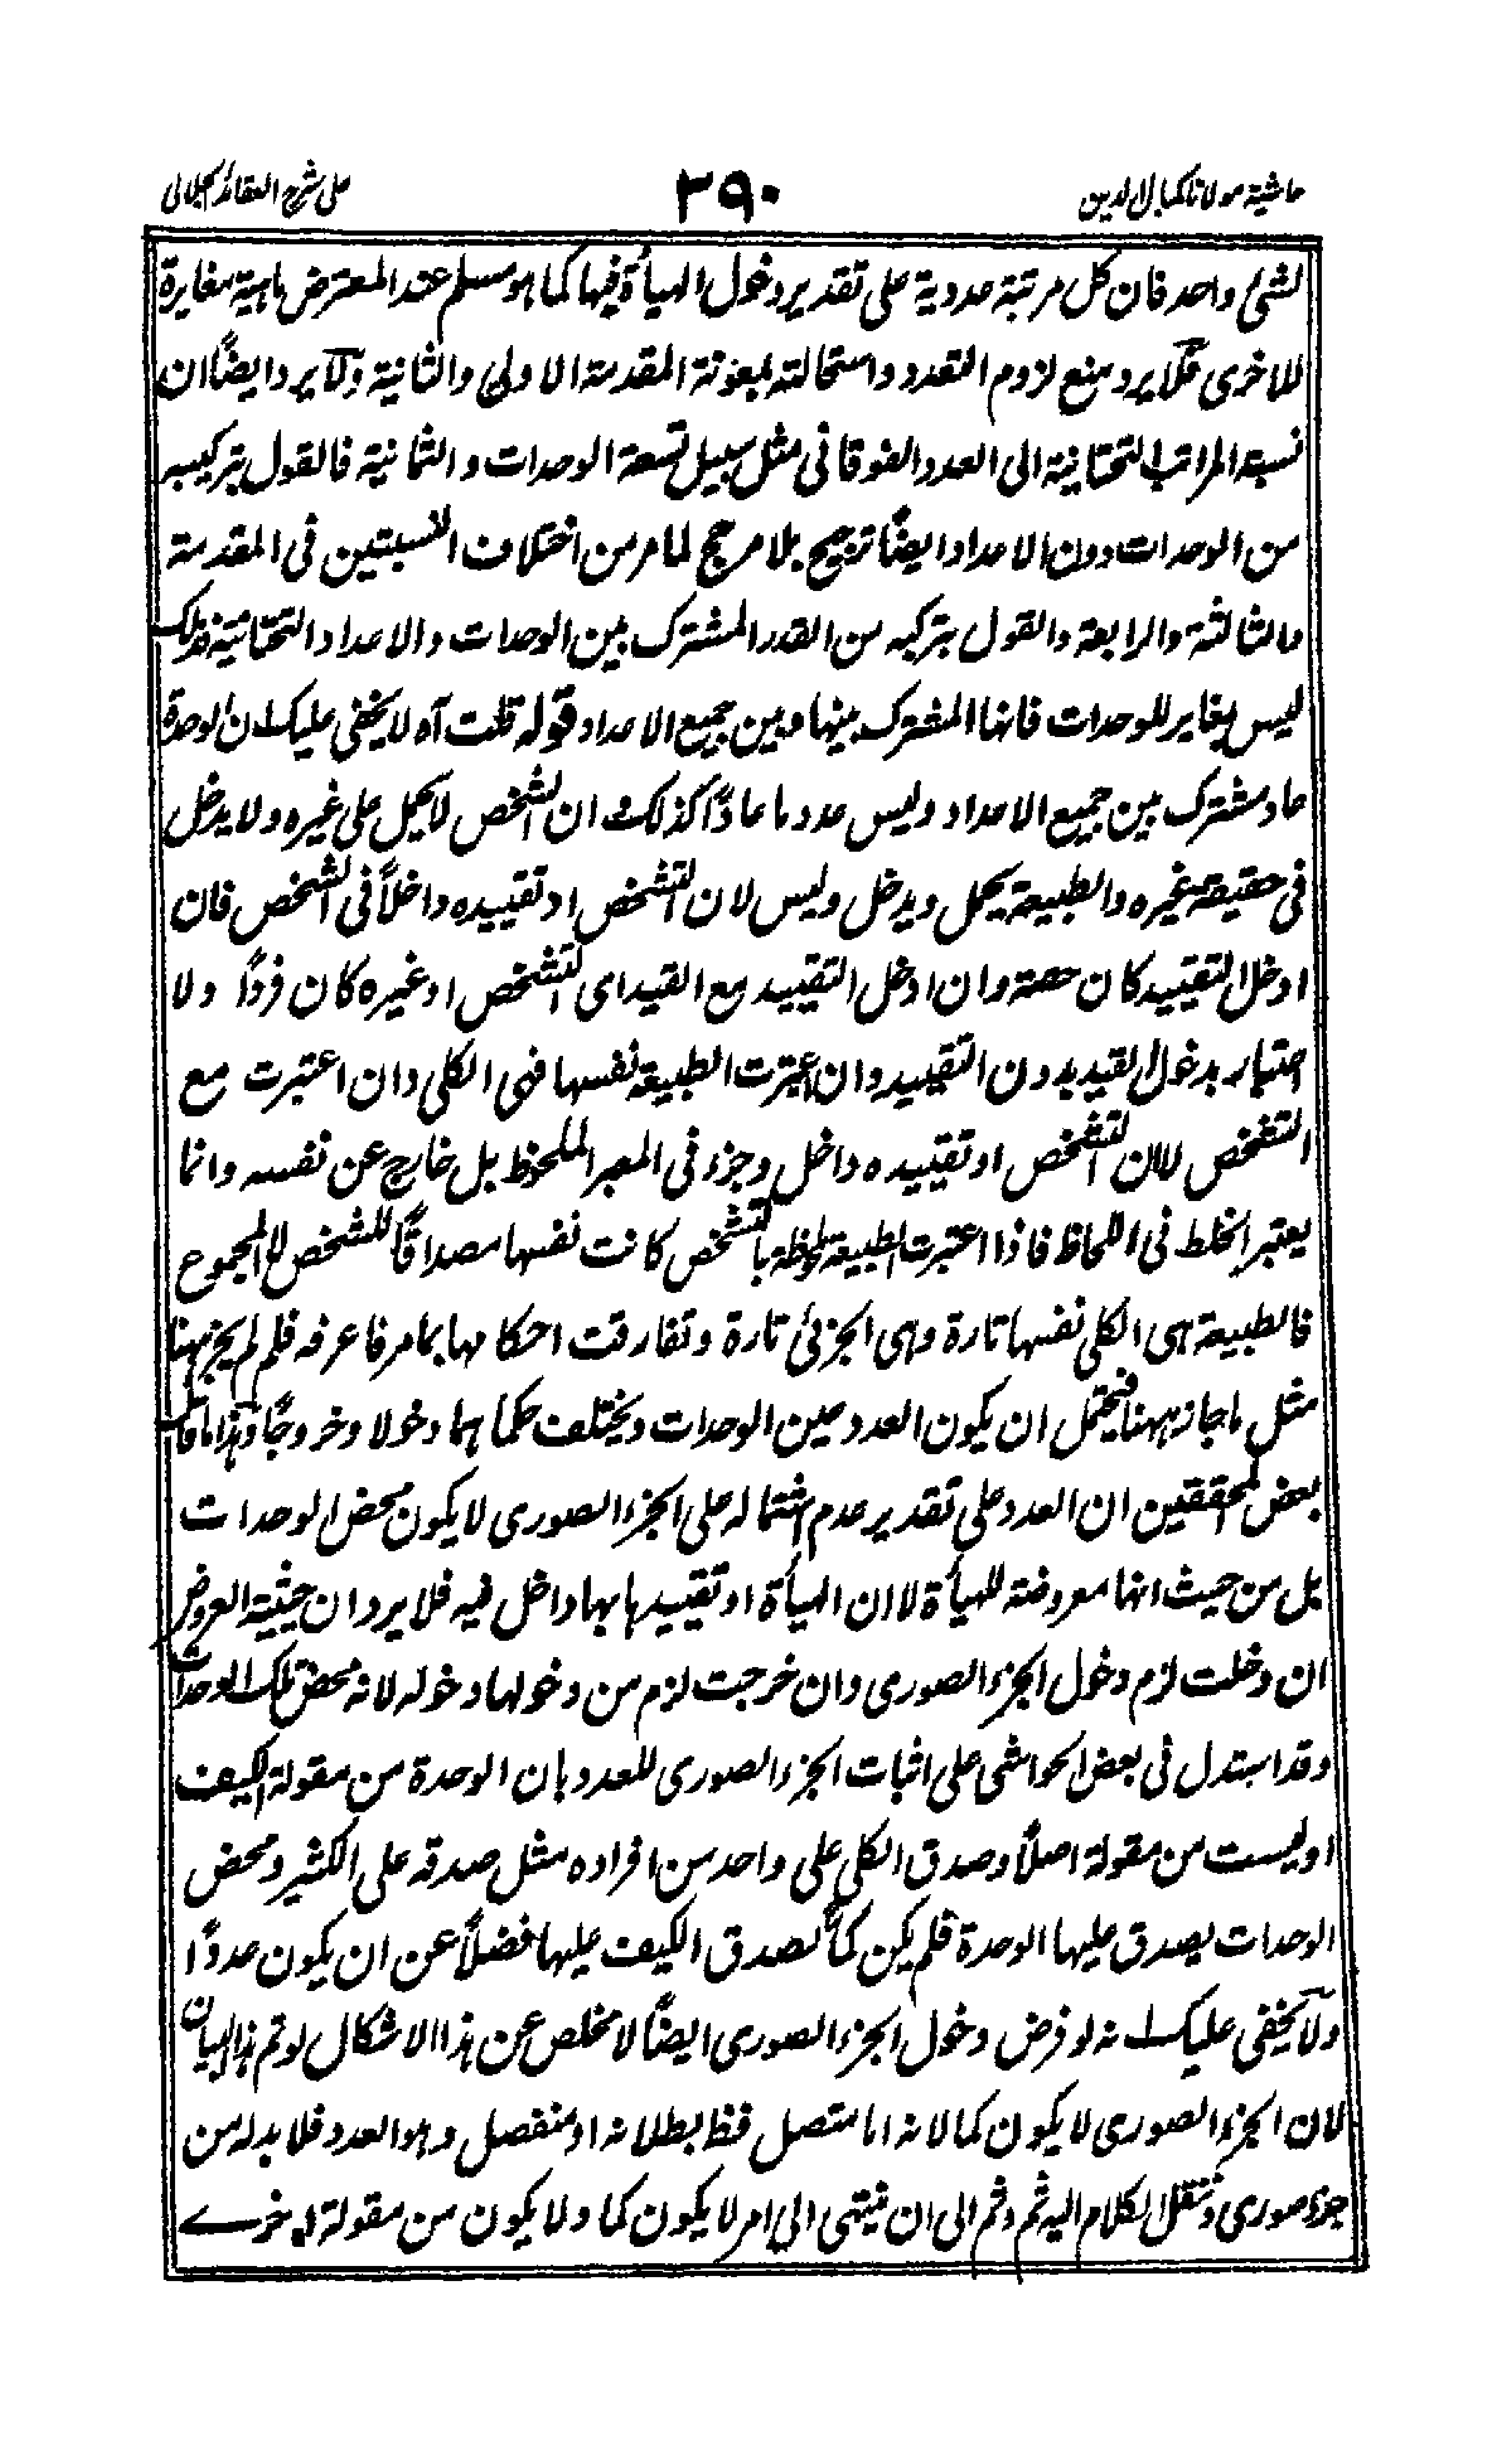 حاشية مولانا كمال الدين
٣٩٠
على شرح العقائد الجلالى
لشئ واحد فان كل مرتبة عددية على تقدير دخول الهيأة فيها كما هو مسلم عند المعترض ماهية مغايرة
للاخرى فلا يرد منع لزوم التعدد واستحالته بمعونة المقدمة الاولى والثانية ولا يرد ايضًا ان
نسبة المراتب التحتانية الى العدد الفوقانى مثل سبيل تسعة الوحدات والثمانية فالقول بتركيبه
من الوحدات دون الاعداد ايضًا ترجيح بلا مرجح لما مر من اختلاف النسبتين فى المقدمة
مالثالثة والرابعة والقول بتركبه من القدر المشترك بين الوحدات والاعداد التحتانية فذلك
ليس بمغاير للوحدات فانها المشترك بينها وبين جميع الاعداد قوله قلت آه لا يخفى عليك ان الوحدة
عاد مشترك بين جميع الاعداد وليس عدد ما عادًا كذلك و ان الشخص لا يحمل على غيره ولا يدخل
فى حقيقة غيره والطبيعة يحمل ويدخل وليس لان التشخص او تقييده داخلًا فى الشخص فان
ادخل التقييد كان حصة وان ادخل التقييد مع القيد اى التشخص او غيره كان فردًا ولا
اعتبار بدخول القيد بدون التقييد وان اعتبرت الطبيعة نفسها فهى الكلى وان اعتبرت مع
التشخص لا ان التشخص او تقييده داخل وجزء فى المعبر الملحوظ بل خارج عن نفسه وانما
يعتبر الخلط فى اللحاظ فاذا اعتبرت الطبيعة ملحوظة بالتشخص كانت نفسها مصداقًا للشخص لا المجموع
فالطبيعة هى الكلى نفسها تارة وهى الجزئى تارة وتفارقت احكامها بما مر فاعرفه فلم لم يجز ههنا
مثل ما جاز ههنا فيحتمل ان يكون العدد عين الوحدات ويختلف حكماهما دخولا وخروجًا وهذا ما قال
بعض المحققين ان العدد على تقدير عدم اشتماله على الجزء الصورى لا يكون محض الوحدات
بل من حيث انها معروضة للهيأة لا ان الهيأة او تقييدها بها داخل فيه فلا يرد ان حيثية العروض
ان دخلت لزم دخول الجزء الصورى وان خرجت لزم من دخولها دخوله لانه محض تلك الوحدات
وقد استدل فى بعض الحواشى على اثبات الجزء الصورى للعدد بان الوحدة من مقولة الكيف
او ليست من مقولة اصلًا وصدق الكلى على واحد من افراده مثل صدقه على الكثير ومحض
الوحدات يصدق عليها الوحدة فلم يكن كمًا لصدق الكيف عليها فضلًا عن ان يكون عددًا
ولا يخفى عليك انه لو فرض دخول الجزء الصورى ايضًا لا مخلص عن هذا الاشكال لو تم هذا البيان
لان الجزء الصورى لا يكون كما لانه اما متصل فظ بطلانه او منفصل وهو العدد فلا بد له من
جزء صورى وننقل الكلام اليه ثم وثم الى ان ينتهى الى امر لا يكون كما ولا يكون من مقولة اخرے